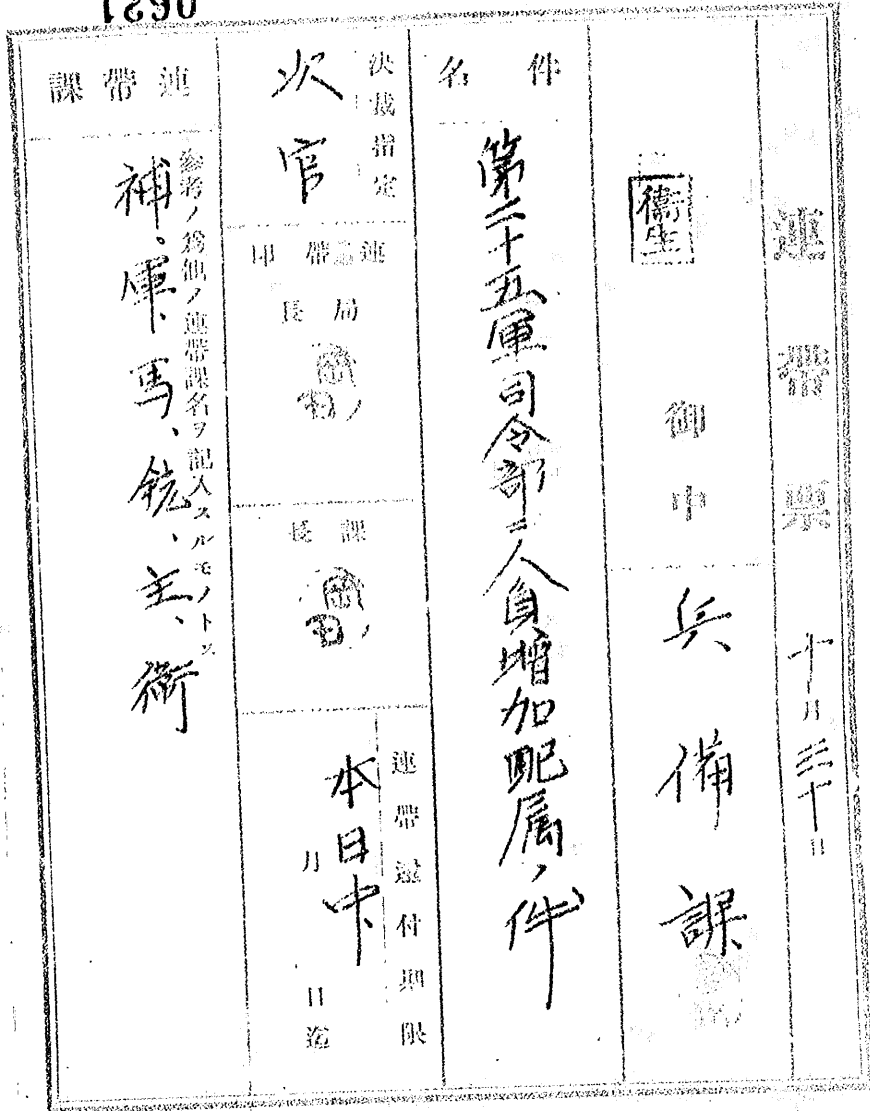 0621
連帶票 十月三十日
衞生 御中 兵備課
件名
第二十五軍司令部ニ人員増加配属ノ件
決裁指定
次官
連帶印
局長
課長
連帶還付期限
本日中
月 日迄
連帶課
參考ノ爲他ノ連帶課名ヲ記入スルモノトス
補、軍、馬、銃、主、衛